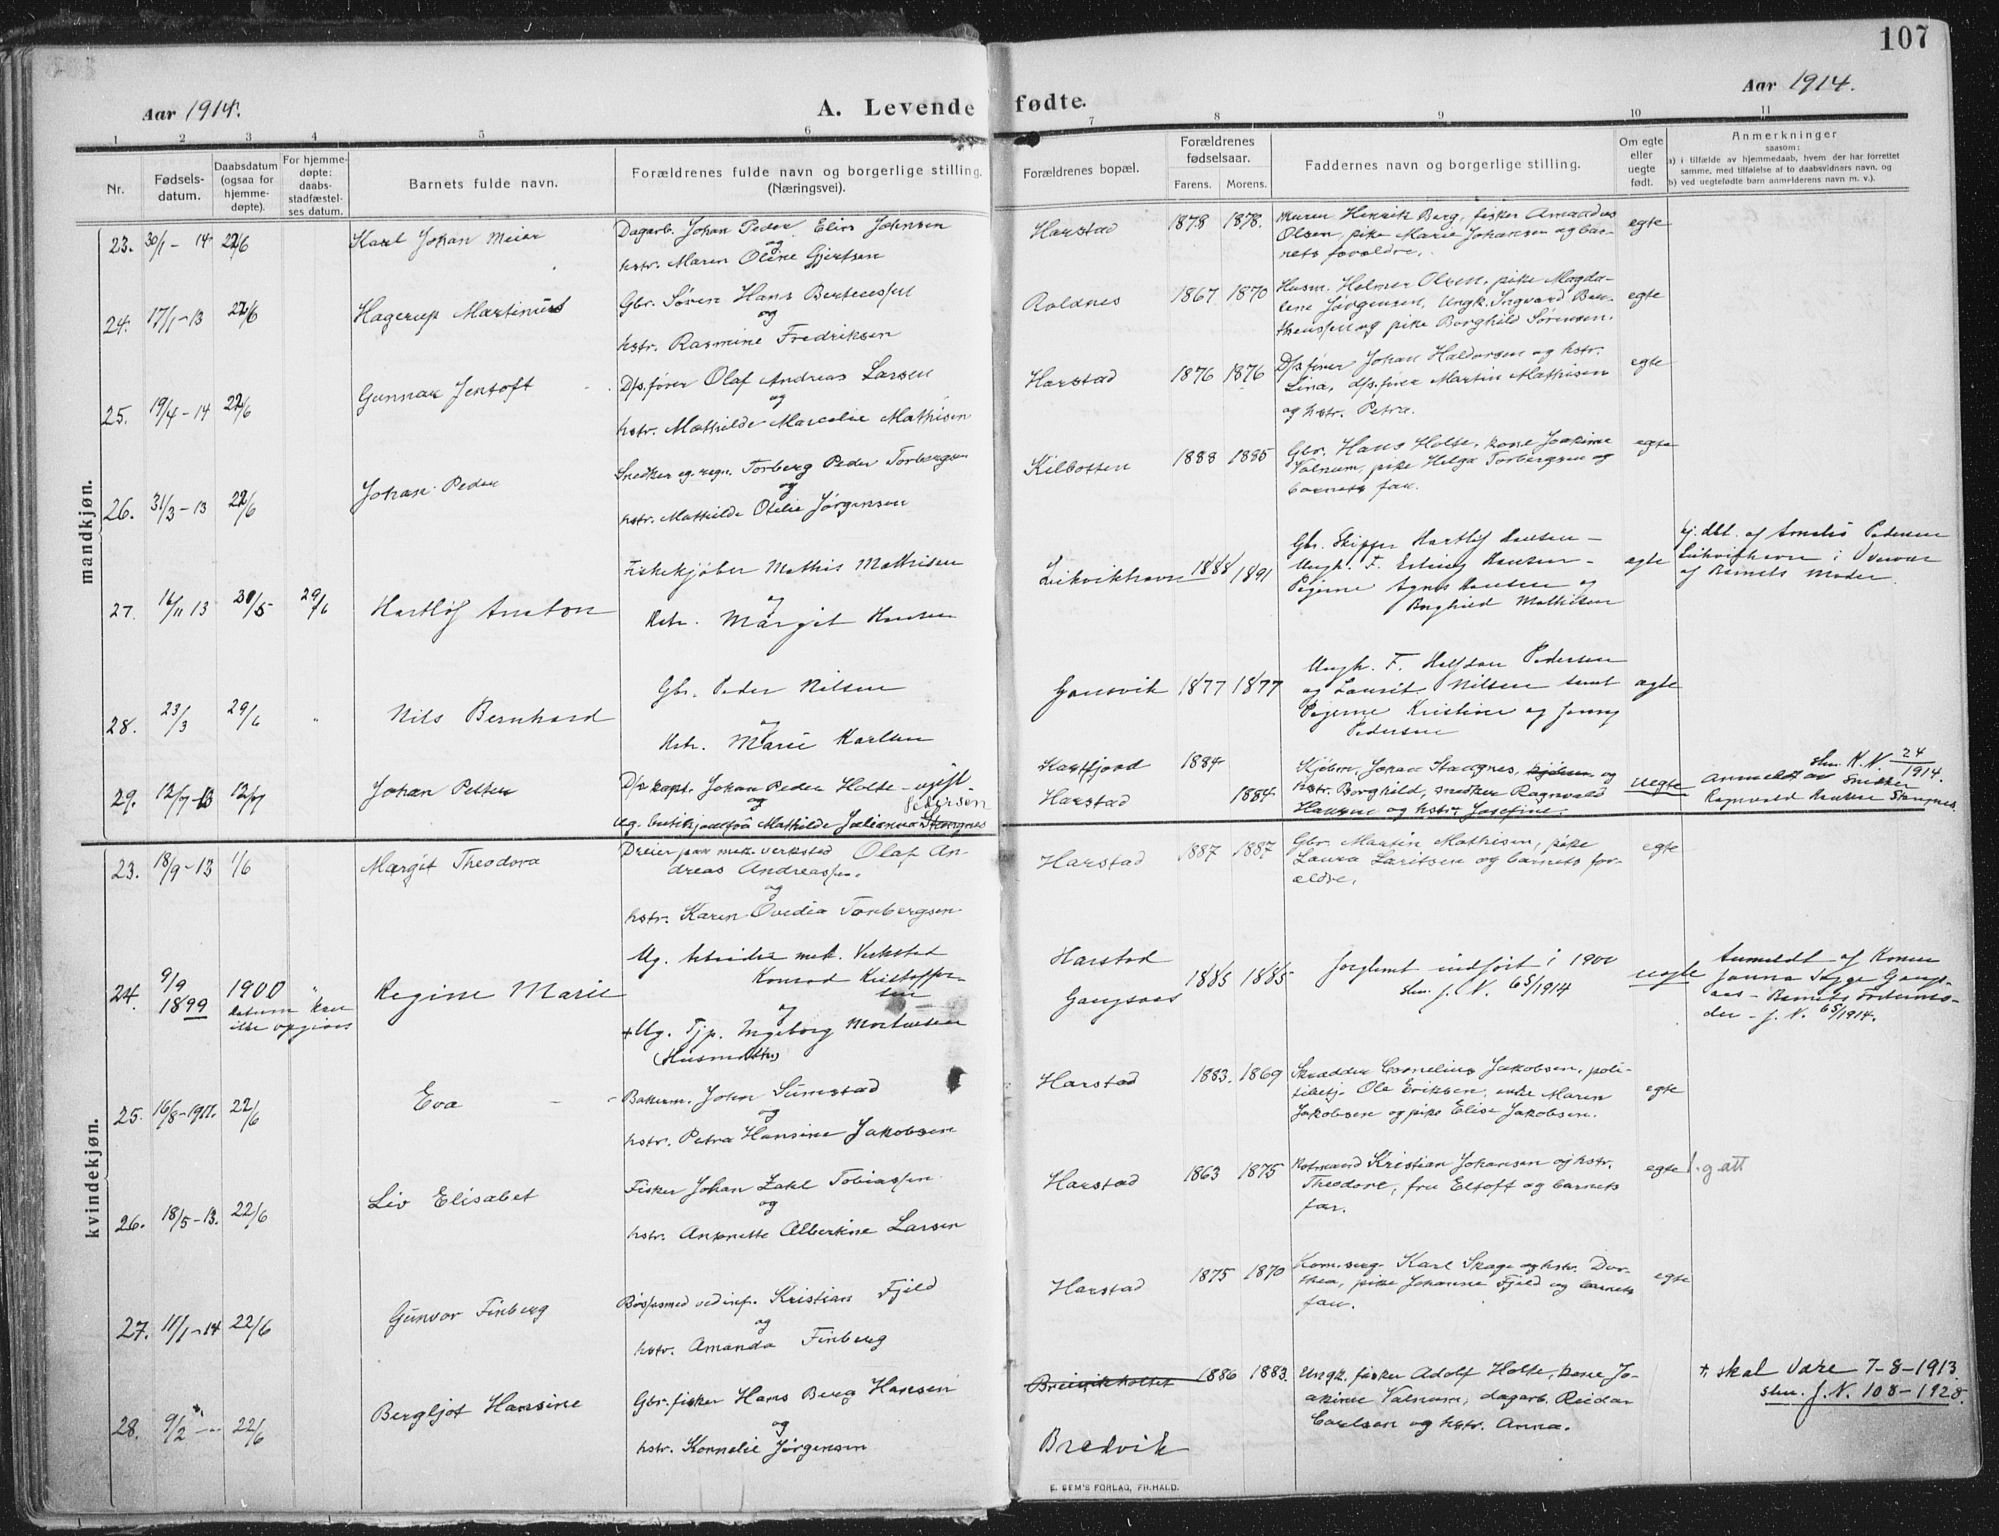 107
Aar 1914.
A. Levende fødte.
Aar 1914.
1 2 3 4 5 6 7 8 9 10 11
Nr.
Fødsels-
datum.
Daabsdatum
(ogsaa for
hjemme-
døpte).
For hjemme-
døpte:
daabs-
stadfæstel-
ses datum.
Barnets fulde navn.
Forældrenes fulde navn og borgerlige stilling.
(Næringsvei).
Forældrenes bopæl.
Forældrenes
fødselsaar.
Farens. Morens.
Faddernes navn og borgerlige stilling.
Om egte
eller
uegte
født.
Anmerkninger
saasom:
a) i tilfælde av hjemmedaab, hvem der har forrettet
samme, med tilføielse af to daabsvidners navn, og
b) ved uegtefødte barn anmelderens navn m. v.).
mandkjøn.
23. 30/1 - 14 22/6
Karl Johan Meier
Dagarb. Johan Peder Elias Johnsen
og
hstr. Maren Oline Gjertsen
Harstad
1878 1878.
Murer Henrik Berg, fisker Amandus
Olsen, pike Marie Johansen og bar-
nets forældre.
egte
24. 17/1 - 13 22/6
Hagerup Martinius
Gbr. Søren Hans Berteussen
og
hstr. Rasmine Fredriksen
Roldnes
1867 1870
Husm. Holmer Olsen, pike Magda-
lene Jørgensen, Ungk. Ingvard Ber-
theussen og pike Borghild Sørensen.
egte
25. 19/4 - 14 22/6
Gunnar Jentoft
D/s.fører Olaf Andreas Larsen
og
hstr. Mathilde Marcelie Mathisen
Harstad
1876 1876
D/s fører Johan Haldorsen og hstr.
Lina, d/s.fører Martin Mathisen
og hstr. Petra.
egte
26. 31/3 - 13 22/6
Johan Peder
Snedker og regn. Torberg Peder Torbergsen
og
hstr. Mathilde Otelie Jørgensen
Kilbotten
1888 1885
Gbr. Hans Holte, kone Joakime
Valnum, pike Helga Torbergsen og
barnets far.
egte
27. 16/11 13 30/5 29/6
Hartløf Anton
Fiskekjøber Mathis Mathisen
og
Hstr. Margit Hansen
1888 1891
Gbr. Skipper Hartløf Hansen -
Ungk. F. Erling Hansen -
Pigerne Agnes Hansen og
Borghild Mathisen
egte
hj. dbt. af Amalie Pedersen
i
af Barnets Moder.
28. 23/3 29/6 "
Nils Bernhard
Gbr. Peder Nilsen
og
Hstr. Marie Karlsen
Gansvik
1877 1877
Ungk. F. Halfdan Pedersen
og Laurits Nilsen samt
Pigerne Kristine og Jenny
Pedersen
egte
29. 12/7 - 13 12/7
Johan Petter
D/s kapt. Johan Peder Holte - ugift -
og
Ug. Mathilde Julianna Stangnes
Harstad
1884
1884.
Kjøbm. Johan Stangnes, og
hstr. Borghild, snedker Ragnvald
Hansen og hstr. Josefine.
uegte
Anmeldt av Snedker
Ragnvald Hansen Stangnes
skr. K.N. 24/1914.
kvindekjøn.
23. 18/9 - 13 1/6
Margit Theodora
Dreier paa mek. verkstad Olaf An-
dreas Andreassen.
og
hstr. Karen Ovedia Tonbergsen
Harstad
1887 1887
Gbr. Martin Mathisen, pike
Laura Laritsen og barnets for-
ældre.
egte
24. 9/9 1899 1900 "
datum kan
ikke opgives
Regine Marie
Ug. Arbeider mek. Verksted
Konrad Kristoffer-
sen
og
+ Ug. Tjp. Ingeborg Mortensen
Harstad
Gangsaas
1885 1885
Forglemt indført i 1900
skr. J. N. 65/1914
uegte
Anmeldt af Konen
Janna Tygge Gangs-
aas - Barnets Fostermo-
der - J. N. 65/1914.
25. 16/8 - 1911. 22/6
Eva
Bakerm. John Sumstad
og
hstr. Petra Hansine Jakobsen
Harstad
1883. 1869
Skrædder Cornelius Jakobsen, poli-
tibetj. Ole Eriksen, enke Maren
Jakobsen og pike Elise Jakobsen.
egte
26. 18/5 - 13. 22/6
Liv Elisabet
Fisker Johan Zahl Tobiassen.
og
hstr. Antonette Alberkine Larsen
Harstad
1863 1875
Kristian Johansen og hstr.
Theodore, fru Eltoft og barnets
far.
egte
1. g att
27. 11/1 - 14 22/6
Gunvor Finberg
Bøssesmed ved inf. Kristian Fjeld
og
hstr. Amanda Finberg
Harstad
1875 1870
Kom. serg. Karl Skage og hstr. Dor-
thea, pike Johanne Fjeld og barnets
far.
egte
28. 9/2 - " - 22/6
Bergljot Hansine
Gbr. fisker Hans Berg Hansen
og
hstr. Kornelie Jørgensen
Breivikholtet
Bredvik
1886 1883.
Ungk. fisker Adolf Holte, kone Jo-
akime Valnum, dagarb. Reidar
Carlsen og hstr. Anna.
+ skal være 7-8-1913
skr. J. N. 108-1928.
E. SEM'S FORLAG, FR.HALD.